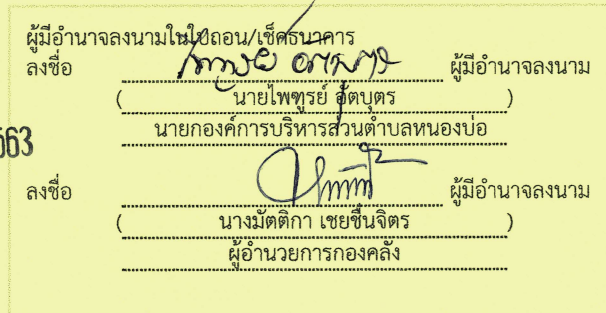 ผู้มีอำนาจลงนามในใบถอน/เช็คธนาคาร
ลงชื่อ ผู้มีอำนาจลงนาม
( นายไพฑูรย์ อัตบุตร )
นายกองค์การบริหารส่วนตำบลหนองบ่อ
563
ลงชื่อ ผู้มีอำนาจลงนาม
( นางมัตติกา เชยชื่นจิตร )
ผู้อำนวยการกองคลัง